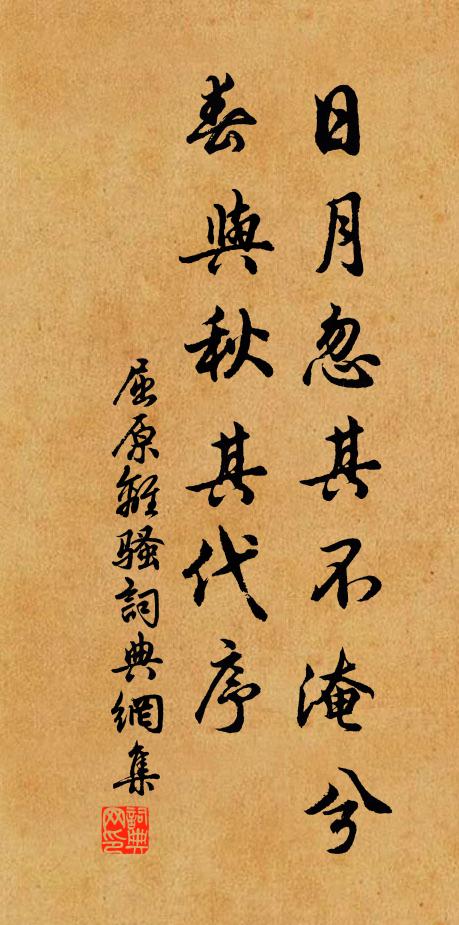 日月忽其不淹兮
春與秋其代序
屈原離騷詞典網集
詞典网印